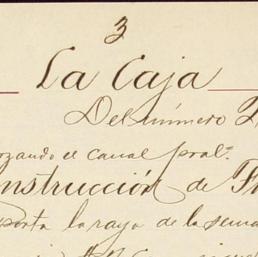 3
La Caja
Del número
zando el canal pral.
nstrucción de
porta la raya de la sema